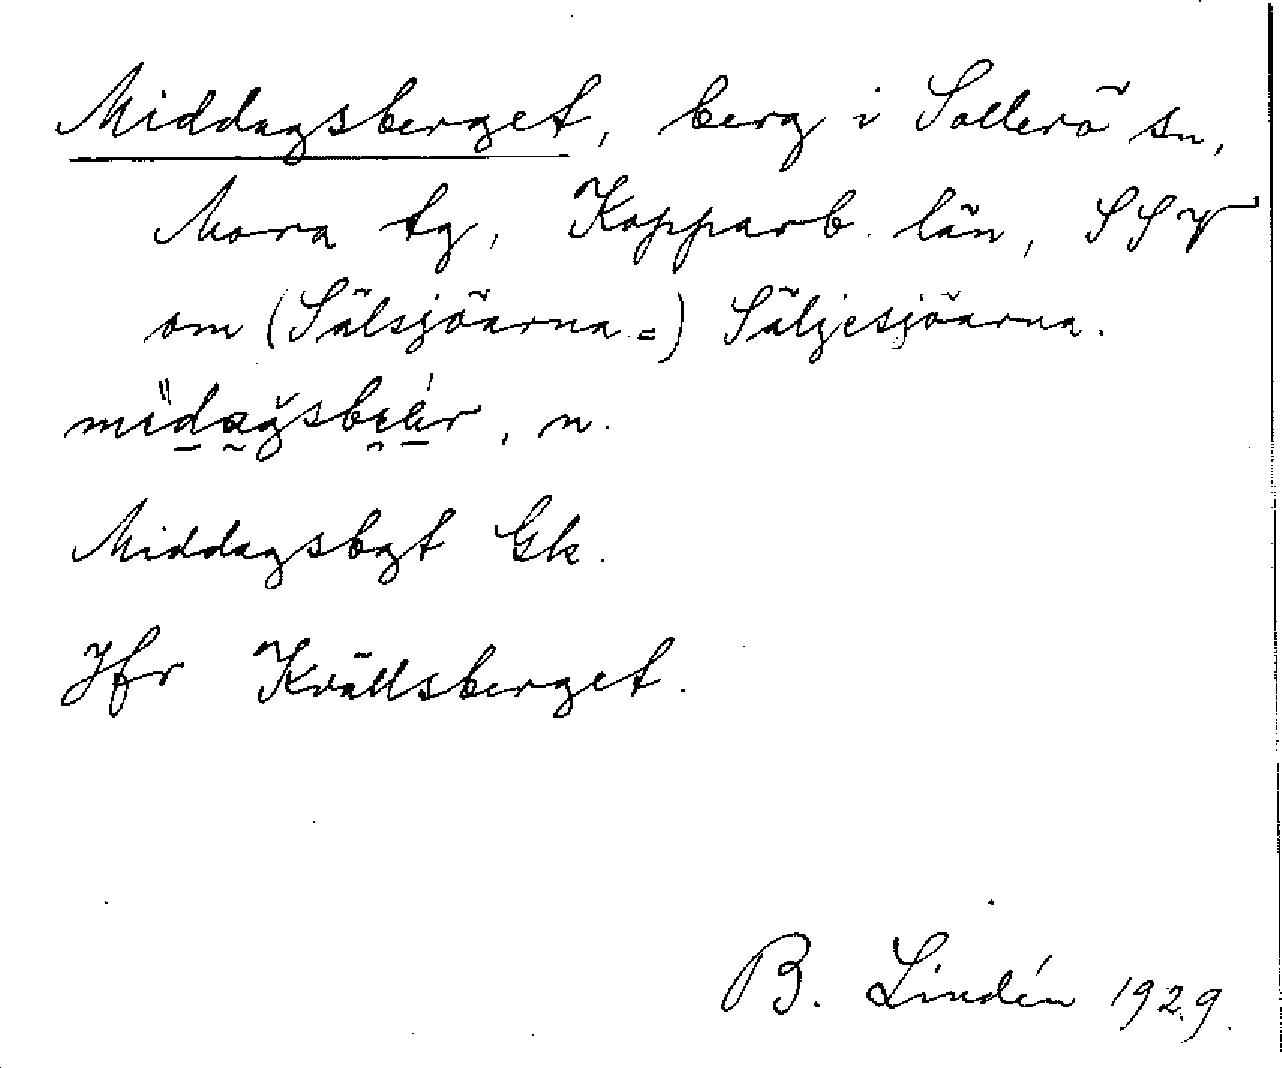 Middagsberget, berg i Sollerö sn,
Mora tg, Kopparb. län, SSV
om (Sälsjöarna =) Säljesjöarna.
n.
Middagsbgt Gk.
Jfr Kvällsberget.
B. Lindén 1929.